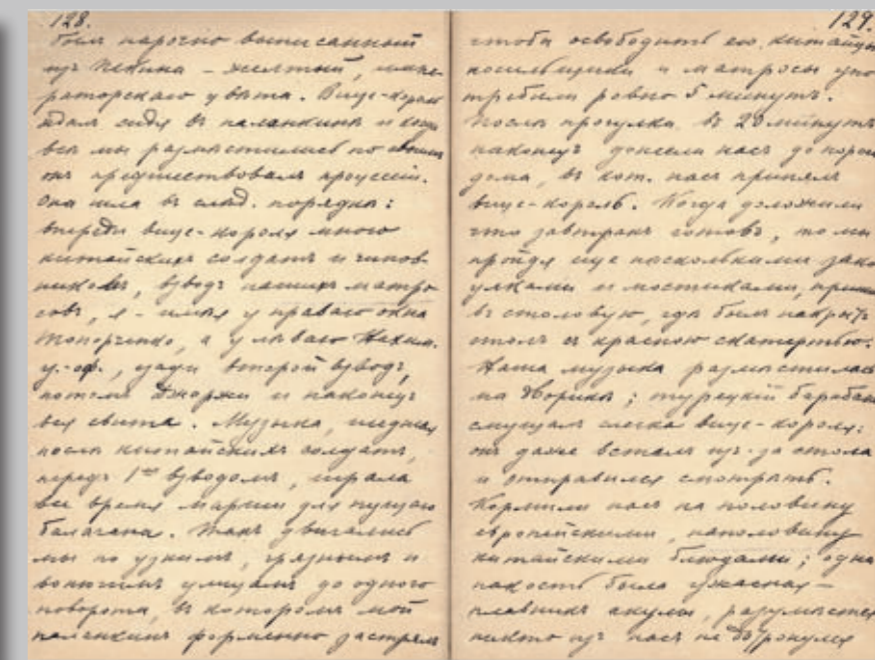 128.
былъ нарочно выписанный
изъ Пекина – желтый, импе-
раторскаго цвѣта. Вице-король
ждалъ сидя въ паланкинѣ и когда
всѣ мы размѣстились по
онъ предшествовалъ процессіи.
Она шла въ слѣд. порядкѣ:
впереди вице-короля много
китайскихъ солдатъ и чинов-
никовъ, взводъ нашихъ матро-
совъ, я – имѣя у праваго окна
Топорченко, а у лѣваго
у.-оф., сзади второй взводъ,
потомъ Джоржи и наконецъ
вся свита. Музыка, шедшая
послѣ китайскихъ солдатъ,
передъ 1ымъ взводомъ, играла
все время марши для пущаго
балагана. Такъ двигались
мы по узкимъ, грязнымъ и
вонючимъ улицамъ до одного
поворота, въ которомъ мой
паланкинъ форменно застрялъ
129.
чтобы освободить его, китайцы
носильщики и матросы упо-
требили ровно 5 минутъ.
Послѣ прогулки въ 20 минутъ
наконецъ донесли насъ до
дома, въ кот. насъ принялъ
вице-король. Когда доложили
что завтракъ готовъ, то мы
пройдя еще нѣсколькими зако-
улками и мостиками,
въ столовую, гдѣ былъ накрытъ
столъ съ красною скатертью.
Наша музыка размѣстилась
на дворикѣ; турецкій барабанъ
смущалъ слегка вице-короля:
онъ даже всталъ изъ-за стола
и отправился смотрѣть.
Кормили насъ на половину
европейскими, наполовину
китайскими блюдами; одна
гадость была ужасная –
плавникъ акулы, разумѣется
никто изъ насъ не дотронулся